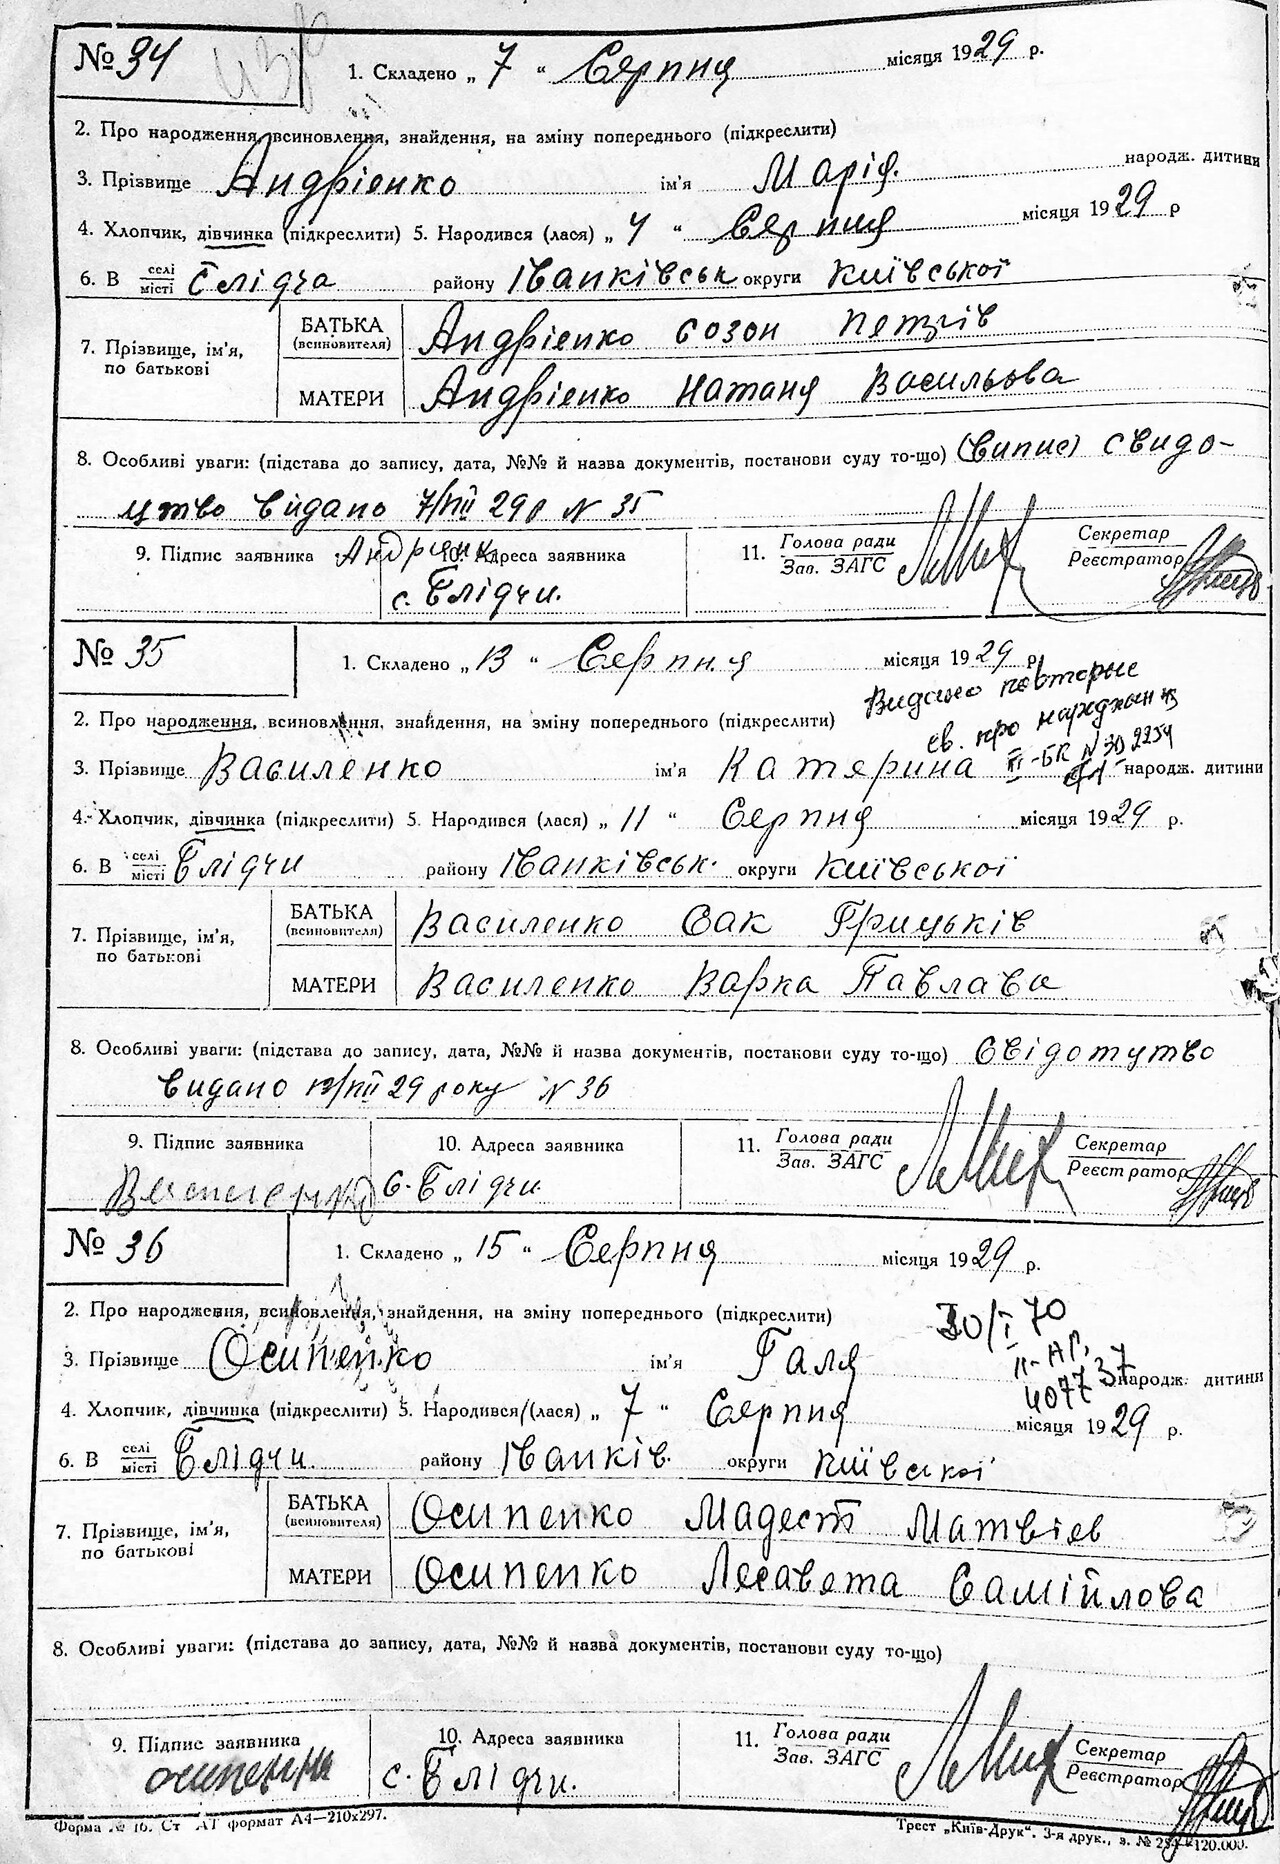 № 34
1. Складено „ 7 “ Серпня місяця 1929 р.
2. Про народження, всиновлення, знайдення, на зміну попереднього (підкреслити)
3. Прізвище Андрієнко ім'я Марія. народж. дитини
4. Хлопчик, дівчинка (підкреслити) 5. Народився (лася) „ 4 “ Серпня місяця 1929 р
6. В селі місті Блідча району Іванківськ округи Київської
7. Прізвище, ім'я, по батькові
БАТЬКА (всиновителя) Андрієнко Созон Петрів
МАТЕРИ Андрієнко Наталя Васильова
8. Особливі уваги: (підстава до запису, дата, №№ й назва документів, постанови суду то-що) (Випис) свидо-
цтво видано 7/VIII 29 р N 35
9. Підпис заявника
10. Адреса заявника
с. Блідчи.
11. Голова ради
Зав. ЗАГС
Секретар
Реєстратор
№ 35
1. Складено „ 13 “ Серпня місяця 1929 р
Видано повторне
св. про народження
2. Про народження, всиновлення, знайдення, на зміну попереднього (підкреслити)
III-БК N 302254
3. Прізвище Василенко ім'я Катерина народж. дитини
4. Хлопчик, дівчинка (підкреслити) 5. Народився (лася) „ 11 “ Серпня місяця 1929 р.
6. В селі місті Блідчи району Іванківськ. округи Київської
7. Прізвище, ім'я, по батькові
БАТЬКА (всиновителя) Василенко Сак Грицьків
МАТЕРИ Василенко Варка Павлава
8. Особливі уваги: (підстава до запису, дата, №№ й назва документів, постанови суду то-що) Свідотутво
видано 13/VIII 29 року N 36
9. Підпис заявника
10. Адреса заявника
Василенко с. Блідчи
11. Голова ради
Зав. ЗАГС
Секретар
Реєстратор
№ 36
1. Складено „ 15 “ Серпня місяця 1929 р.
2. Про народження, всиновлення, знайдення, на зміну попереднього (підкреслити)
30/I 70
II-АГ.
407737
3. Прізвище Осипенко ім'я Галя народж. дитини
4. Хлопчик, дівчинка (підкреслити) 5. Народився (лася) „ 7 “ Серпня місяця 1929 р.
6. В селі місті Блідчи району Іванків. округи Київської
7. Прізвище, ім'я, по батькові
БАТЬКА (всиновителя) Осипенко Мадест Матвіев
МАТЕРИ Осипенко Лесавета Самійлова
8. Особливі уваги: (підстава до запису, дата, №№ й назва документів, постанови суду то-що)
9. Підпис заявника
10. Адреса заявника
с. Блідчи.
11. Голова ради
Зав. ЗАГС
Секретар
Реєстратор
Форма № 16. Ст АТ формат А4—210х297.
Трест „Київ-Друк“. 3-я друк., з. № 284—120.000.